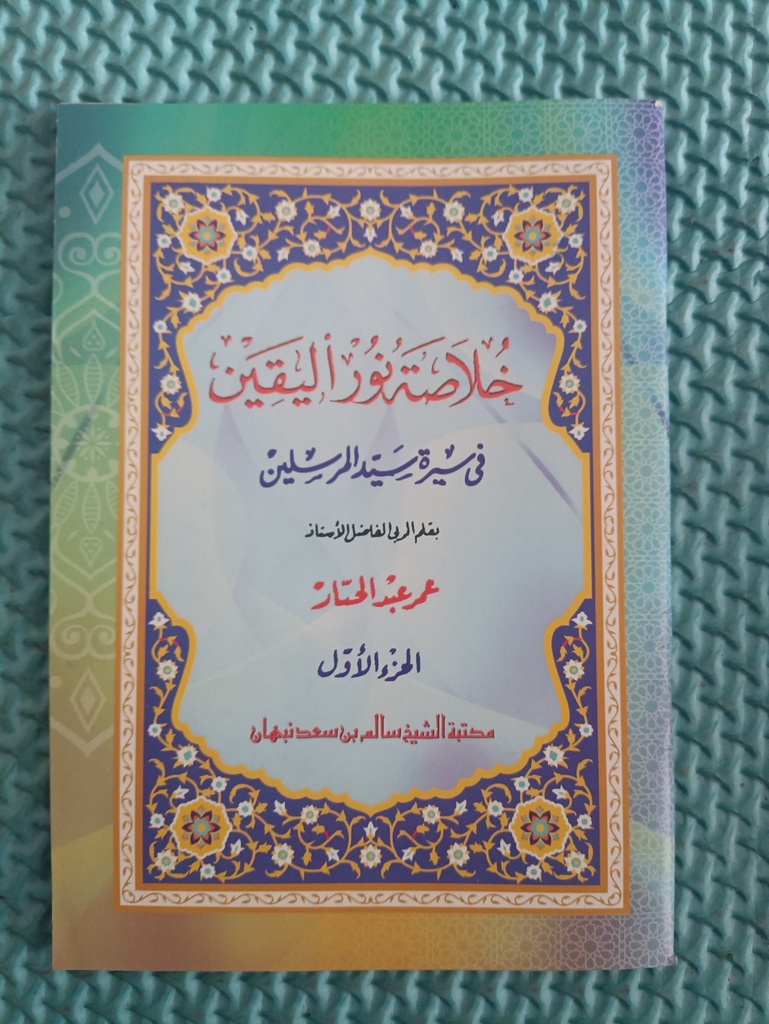 خُلَاصَة نُوْر اْليَقِيَنْ
فى سيرة سَيّد المرسلين
بقلم المربى الفاضل الأستاذ
عمر عبْد الجبّار
الجزء الأوّل
مكتبة الشيخ سالم بن سعد نبهان